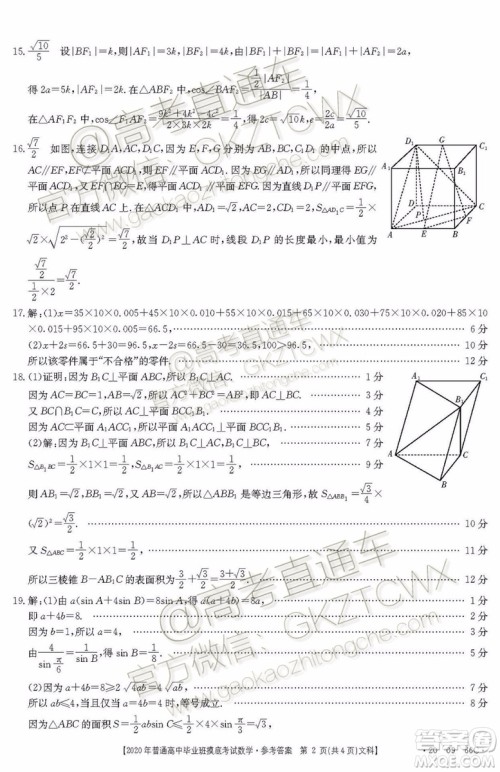 15. √10/5 设|BF₁|=k,则|AF₁|=3k,|BF₂|=4k,由|BF₁|+|BF₂|=|AF₁|+|AF₂|=2a,
得2a=5k,|AF₂|=2k.在△ABF₂中,cos∠BAF₂=
在△AF₁F₂中,cos∠F₁AF₂= =1/4,得2c=√10k,e=2c/2a=√10/5.
16. √7/2 如图,连接D₁A,AC,D₁C,因为E,F,G分别为AB,BC,C₁D₁的中点,所以
AC∥EF,EF⊄平面ACD₁,则EF∥平面ACD₁.因为EG∥AD₁,所以同理得EG∥
平面ACD₁,又EF∩EG=E,得平面ACD₁∥平面EFG.因为直线D₁P∥平面EFG,
所以点P在直线AC上.在△ACD₁中,AD₁=√2,AC=2,CD₁=2,S△AD₁C=1/2
×√2×√(2²-(√2/2)²)=√7/2,故当D₁P⊥AC时,线段D₁P的长度最小,最小值为
(√7/2)/(1/2×2)=√7/2.
D₁ G C₁
A₁ B₁
D C
P F
A E B
17.解:(1)x=35×10×0.005+45×10×0.010+55×10×0.015+65×10×0.030+75×10×0.020+85×10
×0.015+95×10×0.005=66.5, 6分
(2)x+2s=66.5+30=96.5,x-2s=66.5-30=36.5,100>96.5, 10分
所以该零件属于“不合格”的零件. 12分
18.(1)证明:因为B₁C⊥平面ABC,所以B₁C⊥AC. 1分
因为AC=BC=1,AB=√2,所以AC²+BC²=AB²,即AC⊥BC. 3分
又BC∩B₁C=C,所以AC⊥平面BCC₁B₁. 4分
因为AC⊂平面A₁ACC₁,所以平面A₁ACC₁⊥平面BCC₁B₁. 6分
(2)解:因为B₁C⊥平面ABC,所以B₁C⊥AC,B₁C⊥BC. 7分
S△B₁BC=1/2×1×1=1/2,S△AB₁C=1/2×1×1=1/2, 9分
则AB₁=√2,BB₁=√2,又AB=√2,所以△ABB₁是等边三角形,故S△ABB₁=√3/4×
(√2)²=√3/2. 10分
又S△ABC=1/2×1×1=1/2, 11分
所以三棱锥B-AB₁C的表面积为3/2+√3/2=(3+√3)/2. 12分
A₁ C₁
B₁
A C
B
19.解:(1)由a(sin A+4sin B)=8sin A,得a(a+4b)=8a, 1分
即a+4b=8. 2分
因为b=1,所以a=4, 3分
由4/sin(π/6)=1/sin B,得sin B=1/8. 5分
(2)因为a+4b=8≥2√4ab=4√ab, 7分
所以ab≤4,当且仅当a=4b=4时,等号成立. 8分
因为△ABC的面积S=1/2absin C≤1/2×4×sin π/6=1, 11分
【2020年普通高中毕业班摸底考试数学·参考答案 第2页(共4页)文科】
@高考直通车
官方微信:GKZTCWX
www.gaokaozhitongche.com